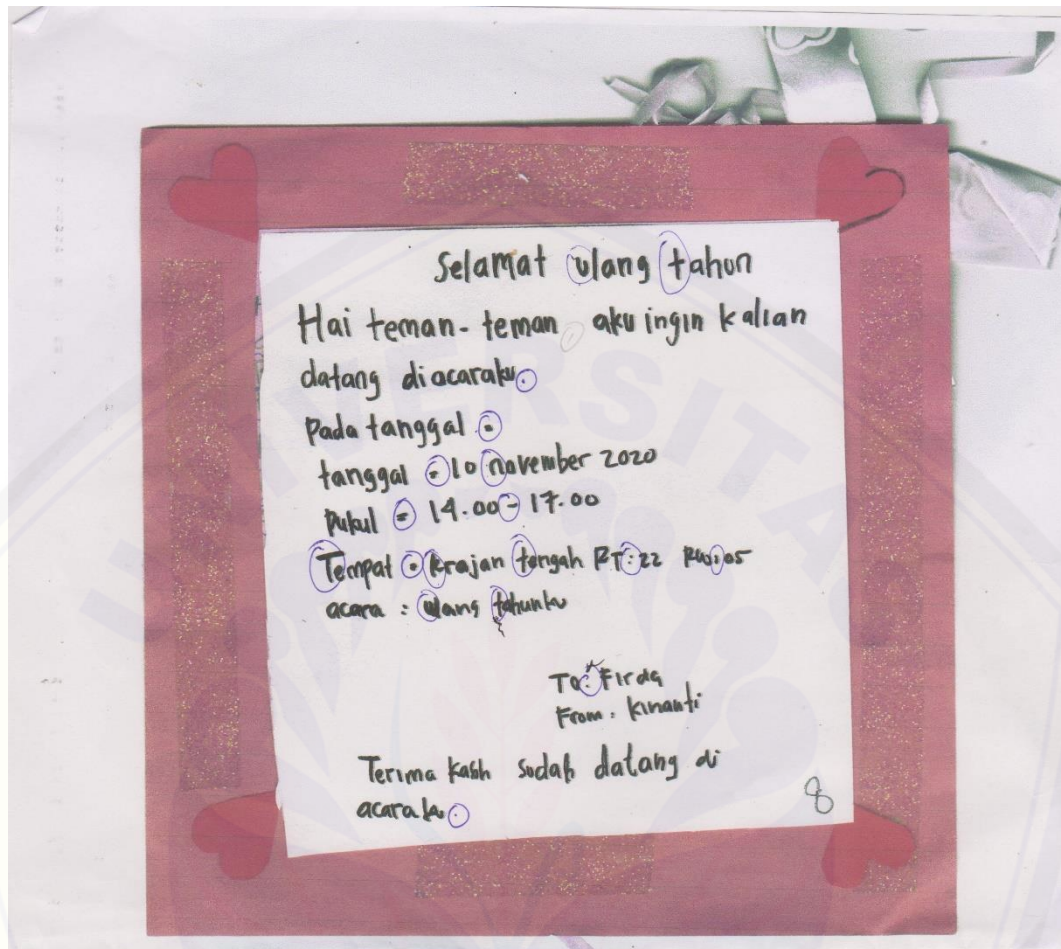 Selamat ulang tahun
Hai teman-teman, aku ingin kalian
datang diacaraku.
Pada tanggal :
tanggal : 10 november 2020
Pukul : 14.00 - 17.00
Tempat : krajan tengah RT: 22 RW: 05
acara : ulang tahunku
To: Firda
From: Kinanti
Terima kasih sudah datang di
acaraku.
8
UNIVERSITAS